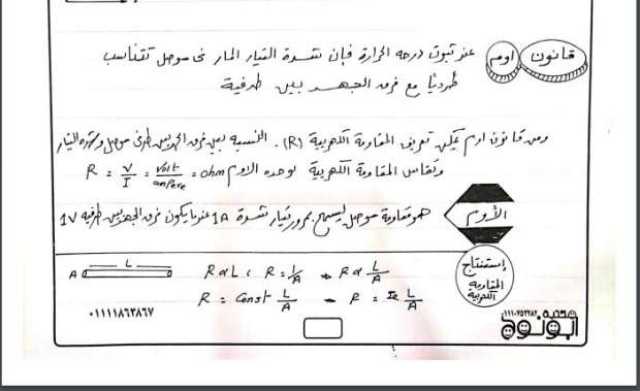 قانون اوم عند ثبوت درجه الحرارة فإن شدة التيار المار فى موصل تتناسب
طرديًا مع فرق الجهد بين طرفية
ومن قانون اوم يمكن تعريف المقاومة الكهربية (R). النسبه بين فرق الجهد بين طرفى موصل وشده التيار
وتقاس المقاومة الكهربية بوحده الاوم R = V/I = Volt/ampere = ohm
الأوم هو مقاومة موصل يسمح بمرور تيار شدة 1A عندما يكون فرق الجهد بين طرفيه 1V
إستنتاج المقاومة الكهربية
A L R α L , R = 1/A R α L/A
R = Const L/A R = L/A
٠١١١١٨٦٢٨٦٧
أبونوح